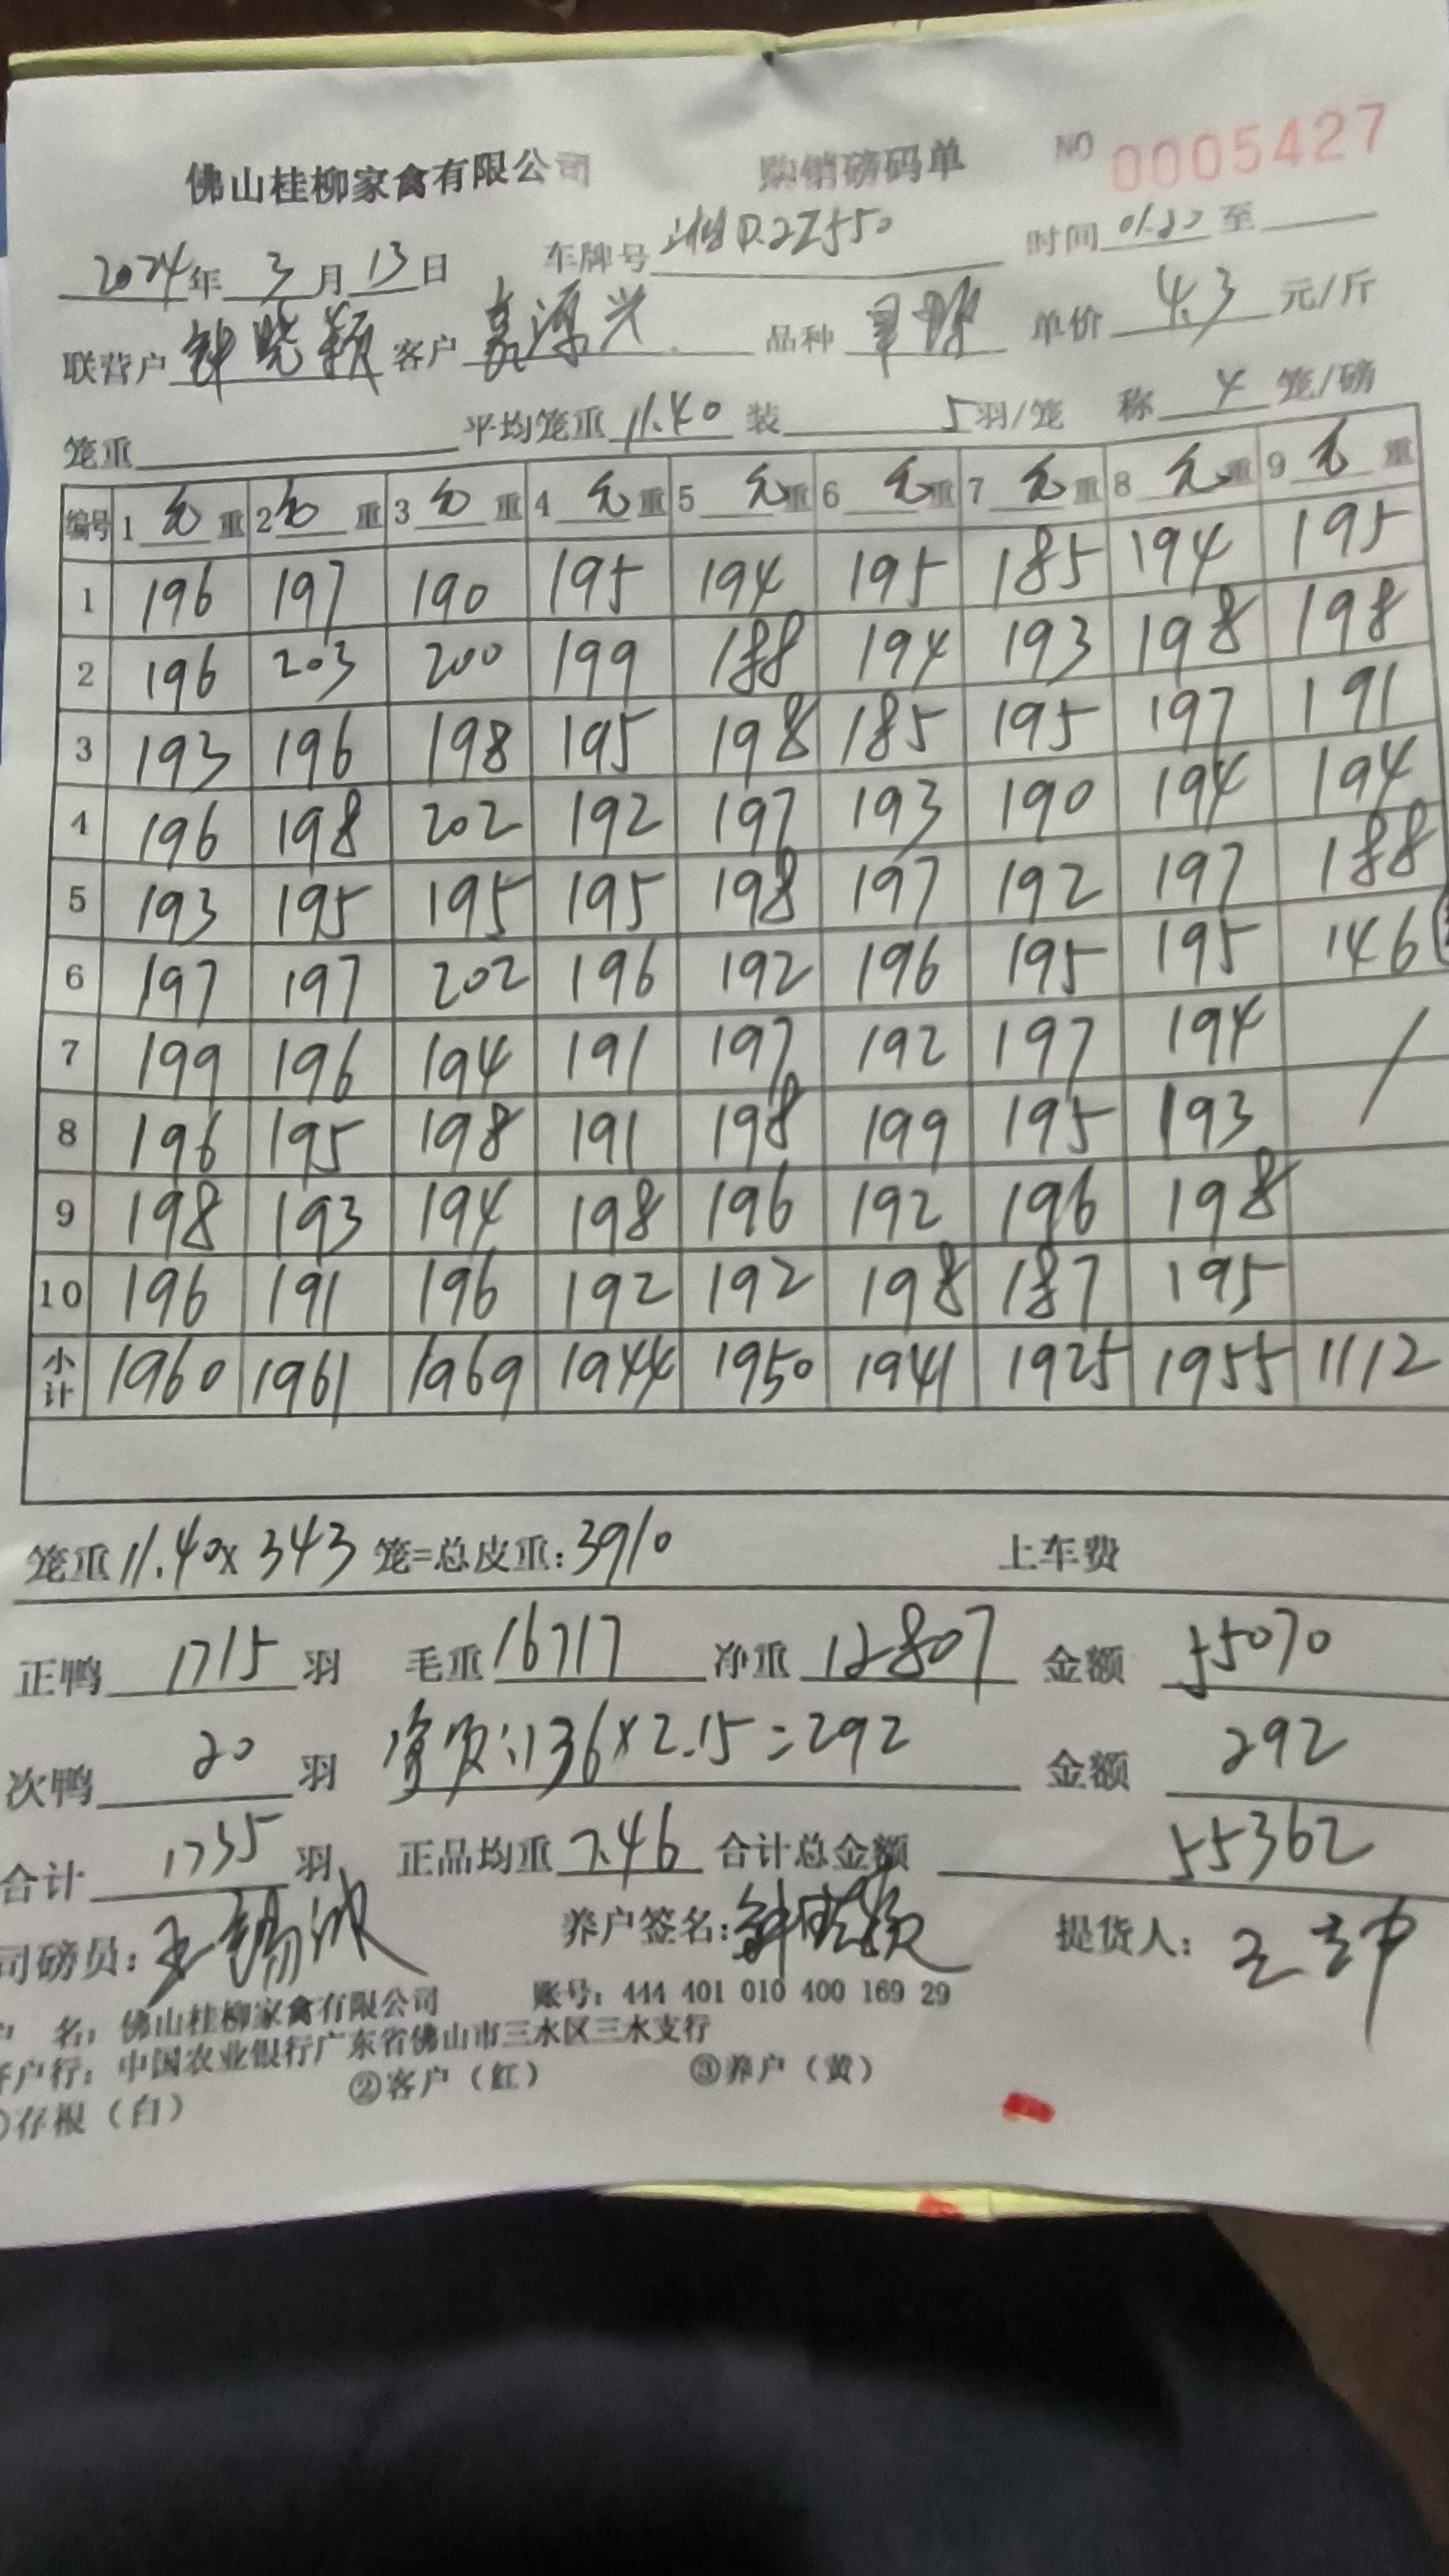 佛山桂柳家禽有限公司 购销磅码单 NO 0005427
2024年 3月 13日 车牌号 D.2Z550 时间 01.20 至
联营户 钟晓颖 客户 嘉源兴 品种 单价 4.3 元/斤
笼重 平均笼重 11.40 装 5羽/笼 称 4 笼/磅
编号 1 毛重 2 毛重 3 毛重 4 毛重 5 毛重 6 毛重 7 毛重 8 毛重 9 毛重
1 196 197 190 195 194 195 185 194 195
2 196 203 200 199 188 194 193 198 198
3 193 196 198 195 198 185 195 197 191
4 196 198 202 192 197 193 190 194 194
5 193 195 195 195 198 197 192 197 188
6 197 197 202 196 192 196 195 195 146
7 199 196 194 191 197 192 197 194
8 196 195 198 191 198 199 195 193
9 198 193 194 198 196 192 196 198
10 196 191 196 192 192 198 187 195
小计 1960 1961 1969 1944 1950 1941 1925 1955 1112
笼重 11.40x 343 笼=总皮重:3910 上车费
正鸭 1715 羽 毛重 16717 净重 12807 金额 55070
次鸭 20 羽 :136×2.15=292 金额 292
合计 1735 羽 正品均重 7.46 合计总金额 55362
司磅员: 养户签名:钟晓颖 提货人:
名:佛山桂柳家禽有限公司 账号:444 401 010 400 169 29
开户行:中国农业银行广东省佛山市三水区三水支行
存根(白) ②客户(红) ③养户(黄)